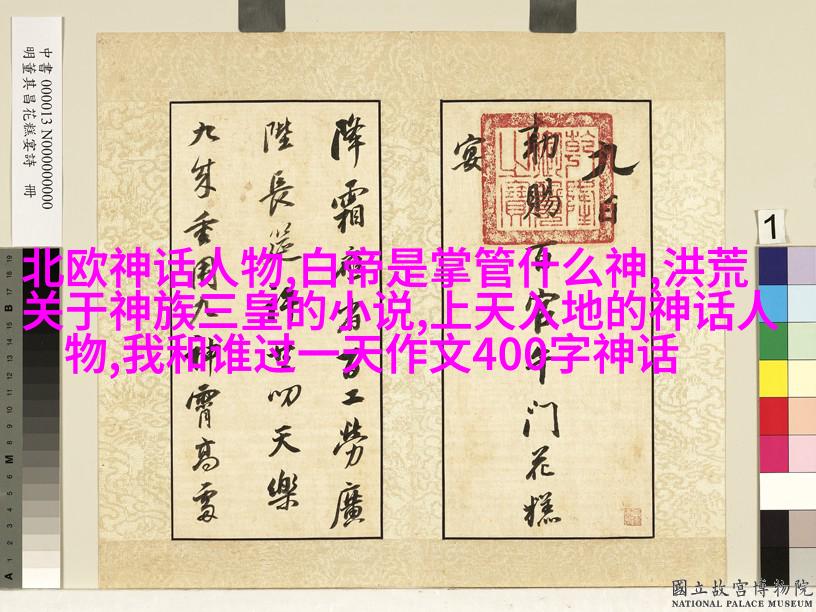 中書 000013 N000000000
明董其昌花糕宴詩 冊
九日
勅賜百官午門花糕
宴
降霜百工勞廣
陛長筵叨天樂
九重霄高
北欧神话人物,白帝是掌管什么神,洪荒
关于神族三皇的小说,上天入地的神话人
物,我和谁过一天作文400字神话
1
國立故宮博物院
NATIONAL PALACE MUSEUM